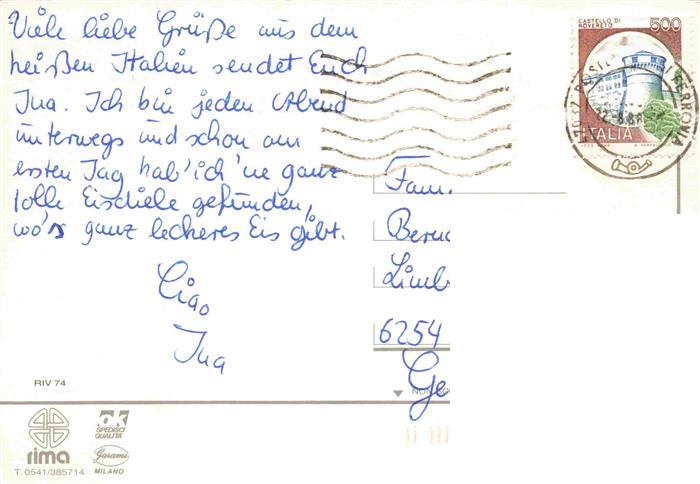 Viele liebe Grüße aus dem
heißen Italien sendet Euch
Ina. Ich bin jeden Abend
unterwegs und schon am
ersten Tag hab' ich 'ne ganz
tolle Eisdiele gefunden,
wo's ganz leckeres Eis gibt.
Ciao
Ina
CASTELLO DI
ROVERETO
500
ITALIA
Fam.
Limb
6254
Ge
RIV 74
rima
T. 0541/385714
OK
SPEDISCI
QUALITA'
Garami
MILANO